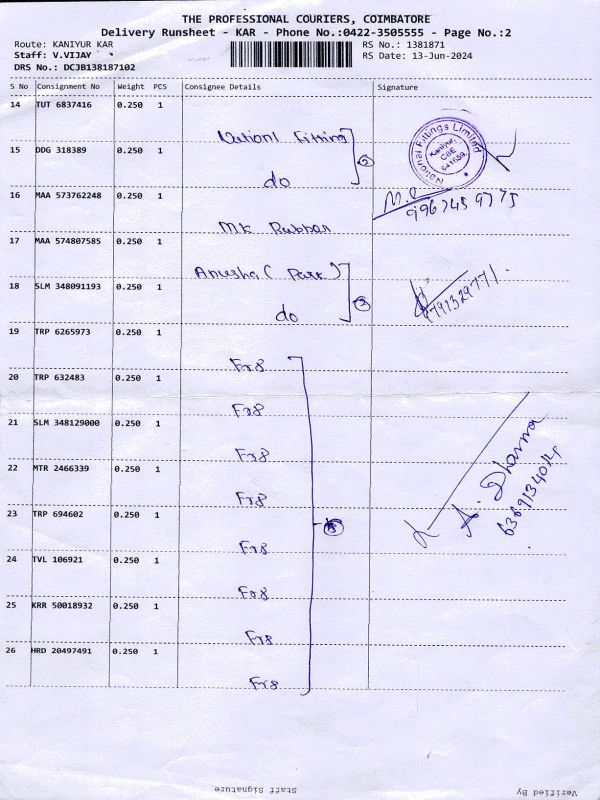 THE PROFESSIONAL COURIERS, COIMBATORE
Delivery Runsheet - KAR - Phone No.:0422-3505555 - Page No.:2
Route: KANIYUR KAR
RS No.: 1381871
Staff: V.VIJAY
RS Date: 13-Jun-2024
DRS No.: DCJB138187102
S No Consignment No Weight PCS Consignee Details Signature
14 TUT 6837416 0.250 1
Nationl Fitting
National Fittings Limited Kaniyur, CBE 641659.
15 DDG 318389 0.250 1
do 2
16 MAA 573762248 0.250 1
9967459775
MK Rubber
17 MAA 574807585 0.250 1
Anusha ( Park )
18 SLM 348091193 0.250 1
do 3
9791329771.
19 TRP 6265973 0.250 1
Fr8
20 TRP 632483 0.250 1
Fr8
21 SLM 348129000 0.250 1
Fr8
22 MTR 2466339 0.250 1
Fr8
A. Dharma
6369134014
23 TRP 694602 0.250 1
Fr8
24 TVL 106921 0.250 1
Fr8
25 KRR 50018932 0.250 1
Fr8
26 HRD 20497491 0.250 1
Fr8
Staff Signature
Verified By